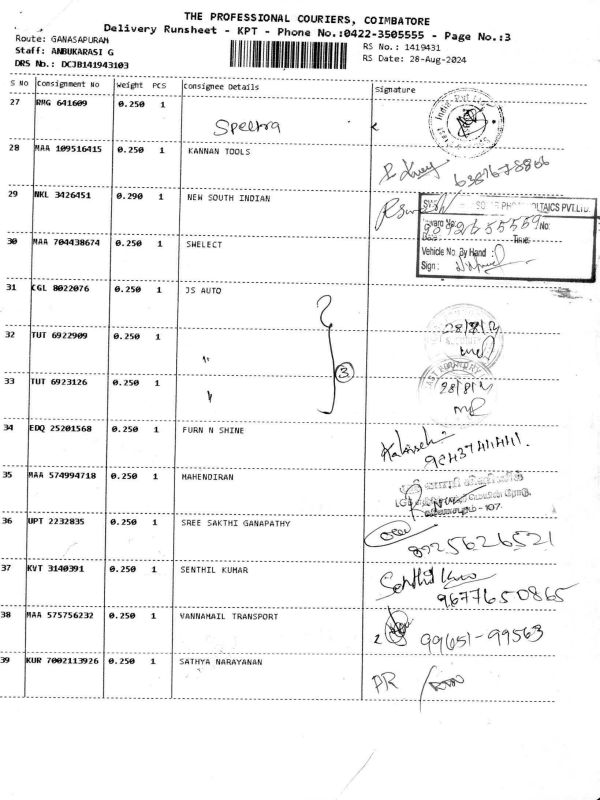 THE PROFESSIONAL COURIERS, COIMBATORE
Delivery Runsheet - KPT - Phone No.:0422-3505555 - Page No.:3
Route: GANASAPURAM
Staff: ANBUKARASI G
DRS No.: DCJB141943103
RS No.: 1419431
RS Date: 28-Aug-2024
S No Consignment No Weight PCS Consignee Details Signature
27 RMG 641609 0.250 1 Spectra
28 MAA 109516415 0.250 1 KANNAN TOOLS
29 NKL 3426451 0.290 1 NEW SOUTH INDIAN
PVT.LTD.
30 MAA 704438674 0.250 1 SWELECT
No:
Time:
Vehicle No. By Hand :
Sign :
31 CGL 8022076 0.250 1 JS AUTO
28/8/
32 TUT 6922909 0.250 1 "
3
33 TUT 6923126 0.250 1 "
28/8/
34 EDQ 25201568 0.250 1 FURN N SHINE
35 MAA 574994718 0.250 1 MAHENDIRAN
36 UPT 2232835 0.250 1 SREE SAKTHI GANAPATHY
8925626521
37 KVT 3140391 0.250 1 SENTHIL KUMAR
Senthil
9677650865
38 MAA 575756232 0.250 1 VANNAMAIL TRANSPORT
99651-99563
39 KUR 7002113926 0.250 1 SATHYA NARAYANAN